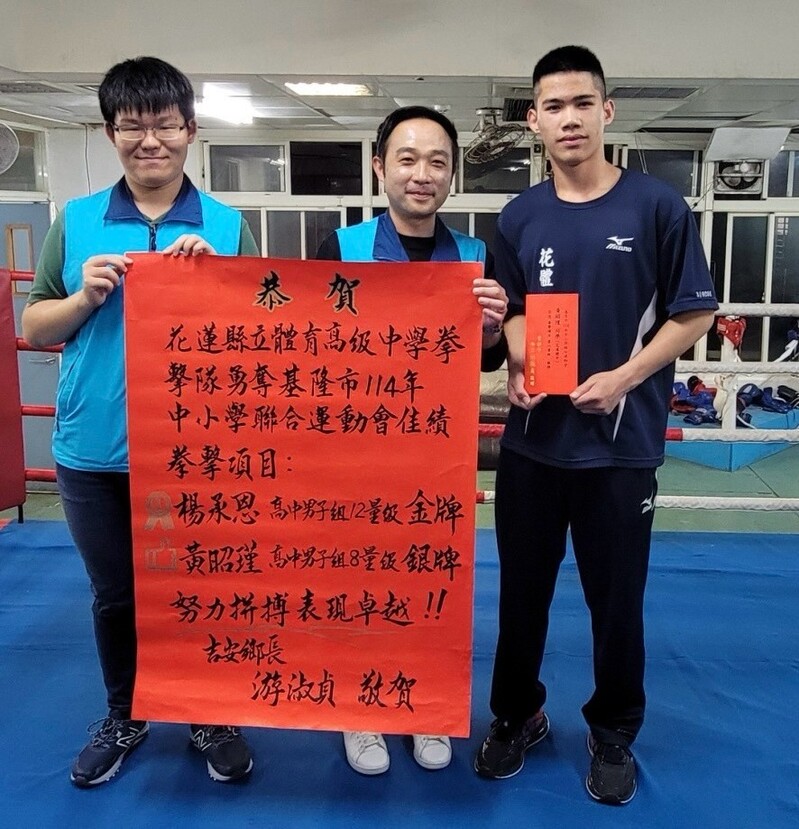 恭賀
花蓮縣立體育高級中學拳
擊隊勇奪基隆市114年
中小學聯合運動會佳績
拳擊項目:
楊承恩 高中男子組12量級 金牌
黃昭瑾 高中男子組8量級 銀牌
努力拼搏表現卓越!!
吉安鄉長
游淑貞 敬賀
花體
MIZUNO